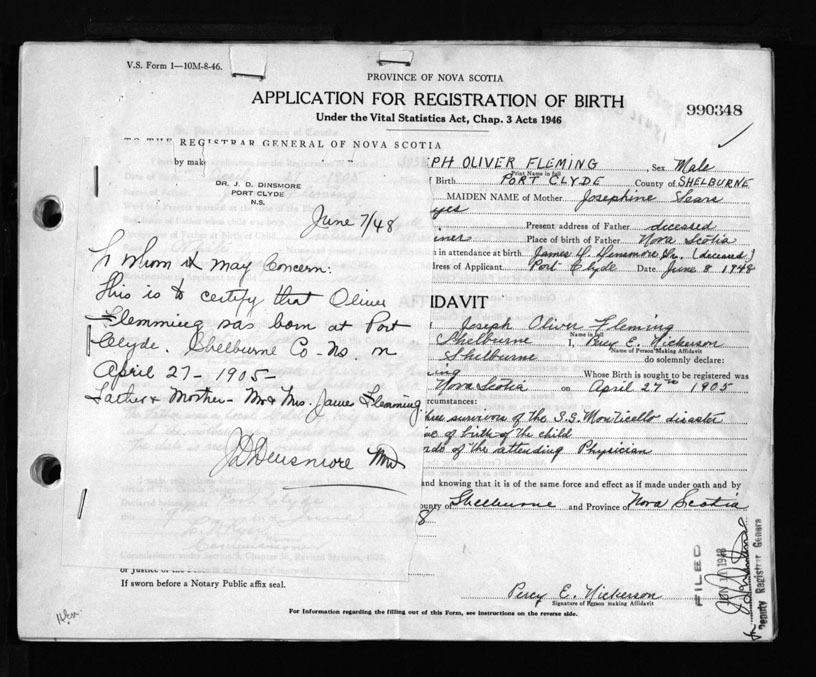 V.S. Form 1—10M-8-46.
PROVINCE OF NOVA SCOTIA
APPLICATION FOR REGISTRATION OF BIRTH
990348
Under the Vital Statistics Act, Chap. 3 Acts 1946
TO THE REGISTRAR GENERAL OF NOVA SCOTIA
by mak
PH OLIVER FLEMING Sex Male
Print Name in full
Birth PORT CLYDE County of SHELBURNE
MAIDEN NAME of Mother Josephine Sears
yes
Present address of Father deceased
iner Place of birth of Father Nova Scotia
in attendance at birth James D. Densmore Sr. (deceased)
dress of Applicant Port Clyde Date June 8 1948
DR. J. D. DINSMORE
PORT CLYDE
N.S.
June 7/48
To Whom it may Concern:
This is to certify that Oliver
Flemming was born at Port
Clyde. Shelburne Co-Ns. on
April 27-1905-
Father & Mother- Mr & Mrs. James Flemming
JDDensmore MD
IDAVIT
Joseph Oliver Fleming
Name in full
Shelburne I, Percy E. Nickerson
Name of Person Making Affidavit
Shelburne do solemnly declare:
ing Whose Birth is sought to be registered was
Nova Scotia on April 27th 1905
rcumstances:
three survivors of the S.S. Monticello disaster
time of birth of the child
rds of the attending Physician
and knowing that it is of the same force and effect as if made under oath and by
ounty of Shelburne and Province of Nova Scotia
8
or Justice of the
If sworn before a Notary Public affix seal.
Percy E. Nickerson
Signature of Person making Affidavit
FILED
1948
Deputy Registrar Genera
For Information regarding the filling out of this Form, see instructions on the reverse side.